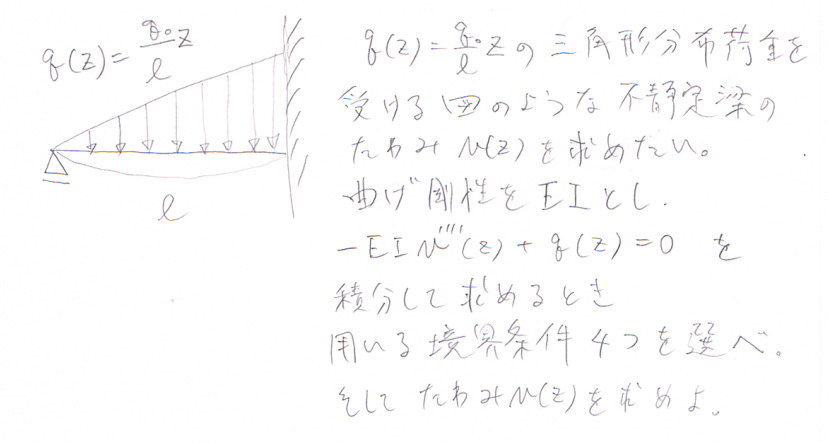 q(z)=q₀/ℓ z
ℓ
q(z)=q₀/ℓ zの三角形分布荷重を
受ける図のような不静定梁の
たわみv(z)を求めたい。
曲げ剛性をEIとし.
-EIv''''(z)+q(z)=0 を
積分して求めるとき
用いる境界条件4つを選べ。
そしてたわみv(z)を求めよ。